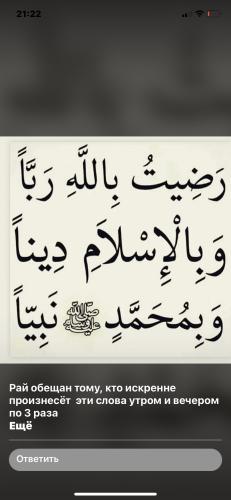 21:22
رَضِيتُ بِاللَّهِ رَبَّاً
وَبِالْإِسْلَامِ دِيناً
وَبِمُحَمَّدٍ ﷺ نَبِيّاً
Рай обещан тому, кто искренне
произнесёт эти слова утром и вечером
по 3 раза
Ещё
Ответить